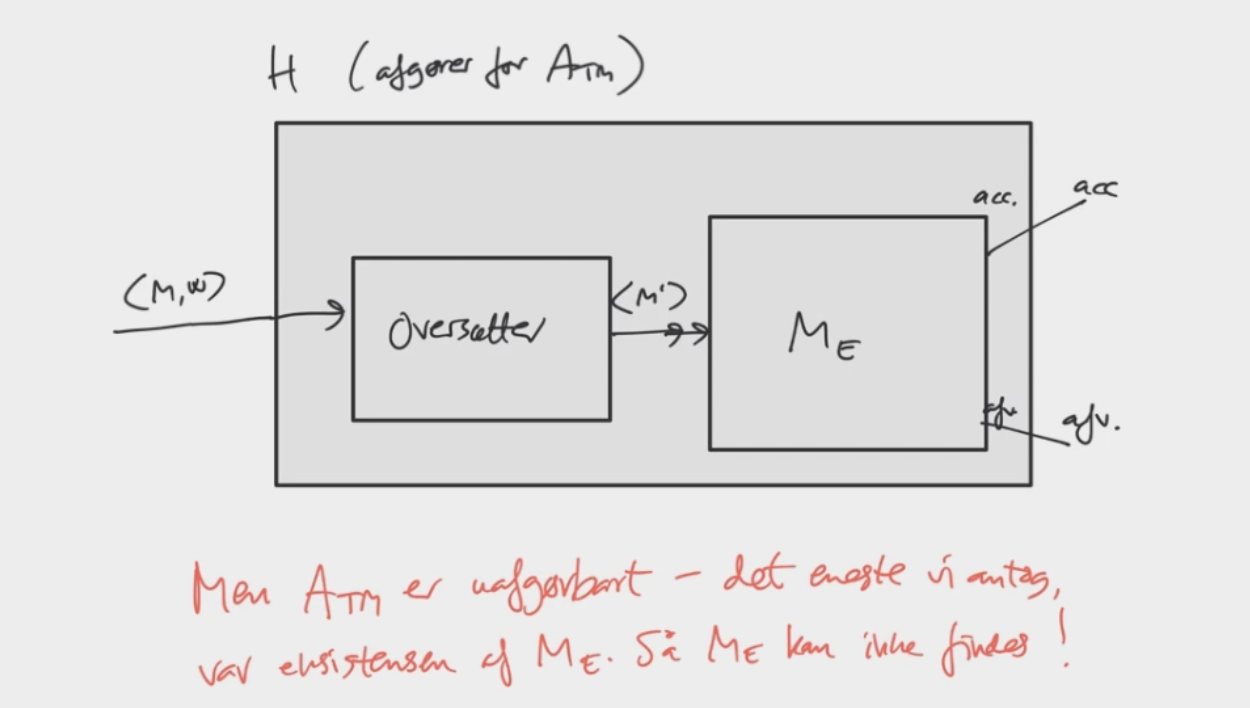 H (afgører for ATM)
acc.
acc
⟨M,w⟩
⟨M'⟩
Oversætter
ME
afv.
afv.
Men ATM er uafgørbart – det eneste vi antog,
var eksistensen af ME. Så ME kan ikke findes!